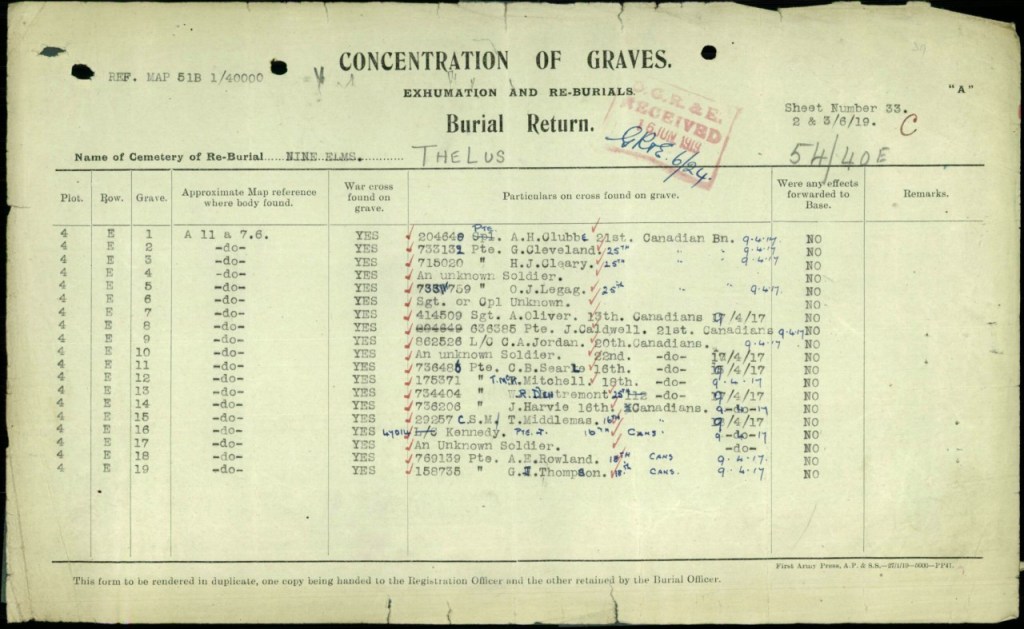 REF. MAP 51B 1/40000
CONCENTRATION OF GRAVES.
"A"
EXHUMATION AND RE-BURIALS.
Sheet Number 33.
2 & 3/6/19. C
Burial Return.
RECEIVED
16 JUN 1919
GR&E. 6/24.
Name of Cemetery of Re-Burial NINE ELMS. THELUS 54/40E
Plot. Row. Grave. Approximate Map reference where body found. War cross found on grave. Particulars on cross found on grave. Were any effects forwarded to Base. Remarks.
4 E 1 A 11 a 7.6. YES Pte A.H.Clubb 21st. Canadian Bn. 9.4.17 NO
4 E 2 -do- YES Pte. G.Cleveland 25th " " 9.4.17 NO
4 E 3 -do- YES 715020 " H.J.Cleary. 25th " " 9.4.17 NO
4 E 4 -do- YES An unknown Soldier. NO
4 E 5 -do- YES " O.J.Legag. 25th " 9.4.17. NO
4 E 6 -do- YES Sgt. or Cpl Unknown. NO
4 E 7 -do- YES 414509 Sgt. A.Oliver. 13th. Canadians /4/17 NO
4 E 8 -do- YES 636385 Pte. J.Caldwell. 21st. Canadians 9.4.17 NO
4 E 9 -do- YES 862526 L/C C.A.Jordan. 20th.Canadians. 9.4.17 NO
4 E 10 -do- YES An unknown Soldier. 22nd. -do- /4/17 NO
4 E 11 -do- YES Pte. C.B.Searle 16th. -do- /4/17 NO
4 E 12 -do- YES 175371 " Mitchell. 18th. -do- 9.4.17 NO
4 E 13 -do- YES 734404 " 25th /4/17 NO
4 E 14 -do- YES 736206 " J.Harvie 16th. Canadians. -do- NO
4 E 15 -do- YES 29257 C.S.M. T.Middlemas. 16th /4/17 NO
4 E 16 -do- YES Kennedy. Pte. 16th Cans. -do- NO
4 E 17 -do- YES An Unknown Soldier. -do- NO
4 E 18 -do- YES 769139 Pte. A.E.Rowland. 18th Cans 9.4.17. NO
4 E 19 -do- YES 158735 " G. Thompson. 18th Cans. 9.4.17 NO
First Army Press, A.P. & S.S.
This form to be rendered in duplicate, one copy being handed to the Registration Officer and the other retained by the Burial Officer.